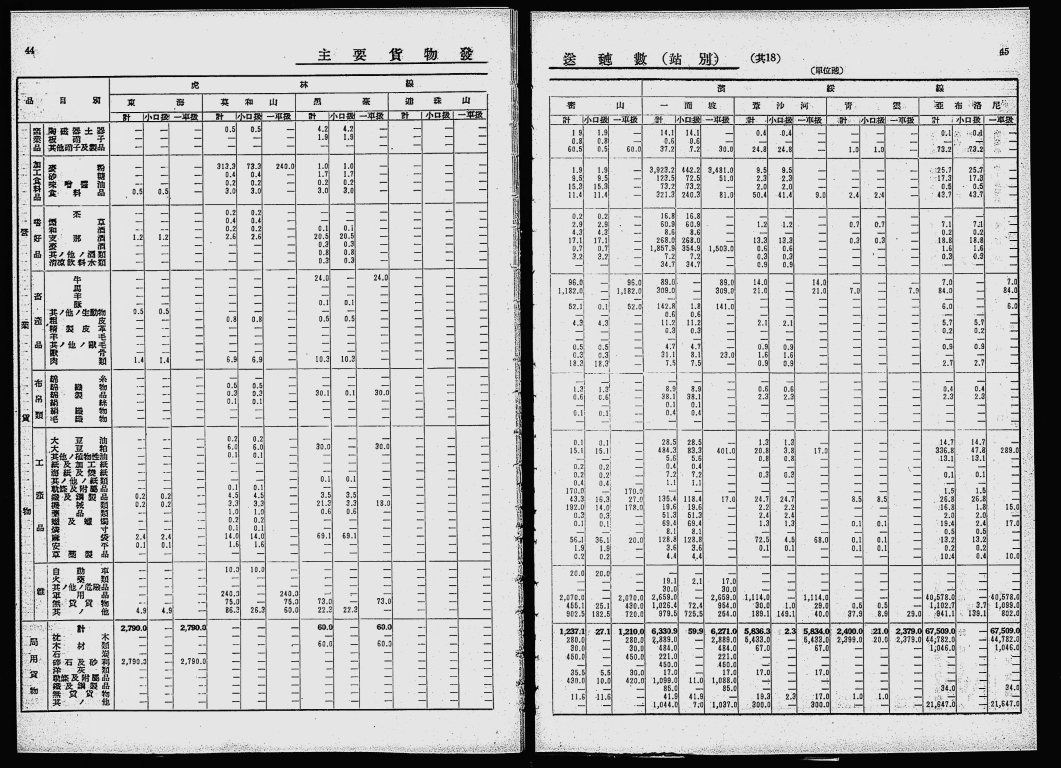 44
主要貨物發
虎林線
品目別
東海
莫和山
黒臺
連珠山
計 小口扱 一車扱 計 小口扱 一車扱 計 小口扱 一車扱 計 小口扱 一車扱
陶磁器土器 — — — 0.5 0.5 — 4.2 4.2 — — — —
板硝子 — — — — — — 1.9 1.9 — — — —
其他硝子及製品
加工食料品
麥粉 — — — 313.3 73.3 240.0 1.0 1.0 — — — —
砂糖 — — — 0.4 0.4 — 1.7 1.7 — — — —
味噌醬油 — — — 0.2 0.2 — 0.2 0.2 — — — —
食料品 0.5 0.5 — 3.0 3.0 — 3.0 3.0 — — — —
嗜好品
茶 — — — 0.2 0.2 —
草 — — — 0.4 0.4 —
和酒 — — — 0.2 0.2 — 0.1 0.1 —
支那酒 1.2 1.2 — 2.6 2.6 — 20.5 20.5 —
麥酒 0.3 0.3
其ノ他ノ酒類 0.8 0.8
清涼飲料水類 0.3 0.3
畜產品
牛 24.0 — 24.0
馬
羊
豚 0.1 0.1
其ノ他ノ生動物 0.5 0.5
粗皮 0.8 0.8 — 0.5 0.5
精製皮革
羊毛
其ノ他ノ獸毛
獸骨
肉類 1.4 1.4 — 6.9 6.9 — 10.3 10.3
布帛類
綿糸
綿織物 0.5 0.5
綿製品 0.3 0.3 — 30.1 0.1 30.0
0.1 0.1
絹織物
毛織物
工產品
大豆油 0.2 0.2
大豆粕 6.0 6.0 — 30.0 — 30.0
其他ノ植物性油 0.1 0.1
紙及加工紙
其ノ他ノ紙類 0.1 0.1
車輛及附屬品 0.1 0.1
鐵及鋼製品 0.2 0.2 — 4.5 4.5 — 3.5 3.5
機械類 0.2 0.2 — 3.3 3.3 — 21.3 3.3 18.0
藥品類 1.0 1.0 — 0.6 0.6
蠟及蠟燭 0.2 0.2
0.1 0.1
麻袋 2.4 2.4 — 14.0 14.0 — 69.1 69.1
安平 0.1 0.1 — 1.6 1.6
草蓆製品
雜
自動車 10.0 10.0
火藥類
其ノ他ノ危險品
軍用品 240.0 — 240.0
無賃貨物 75.0 — 75.0 73.0 — 73.0
其ノ他 4.9 4.9 — 86.3 26.3 60.0 22.3 22.3 —
局用貨物
計 2,790.0 — 2,790.0 — — — 60.0 — 60.0
枕木
木材類 60.0 — 60.0
石炭
碎石及砂利 2,790.0 — 2,790.0
洋灰類
車輛及附屬品
鐵及鋼製品
無賃貨物
其ノ他
45
送噸數(站別) (共18)
(單位瓲)
濱綏線
密山
一面坡
葦沙河
青雲
亞布洛尼
計 小口扱 一車扱 計 小口扱 一車扱 計 小口扱 一車扱 計 小口扱 一車扱 計 小口扱 一車扱
1.9 1.9 — 14.1 14.1 — 0.4 0.4 — — — — 0.1 0.1 —
0.8 0.8 — 0.6 0.6 —
60.5 0.5 60.0 37.2 7.2 30.0 24.8 24.8 — 1.0 1.0 — 73.2 73.2 —
1.9 1.9 — 3,923.2 442.2 3,481.0 9.5 9.5 — — — — 25.7 25.7 —
9.5 9.5 — 123.5 72.5 51.0 2.3 2.3 — — — — 17.3 17.3 —
15.3 15.3 — 73.2 73.2 — 2.0 2.0 — — — — 0.5 0.5 —
11.4 11.4 — 321.3 240.3 81.0 50.4 41.4 9.0 2.4 2.4 — 43.7 43.7 —
0.2 0.2 — 16.8 16.8 —
2.9 2.9 — 60.9 60.9 — 1.2 1.2 — 0.7 0.7 — 7.1 7.1 —
4.3 4.3 — 8.6 8.6 — — — — — — — 0.2 0.2 —
17.1 17.1 — 268.0 268.0 — 13.3 13.3 — 0.3 0.3 — 18.8 18.8 —
0.7 0.7 — 1,857.9 354.9 1,503.0 0.6 0.6 — — — — 1.6 1.6 —
3.2 3.2 — 7.2 7.2 — 0.3 0.3 — — — — 0.3 0.3 —
34.7 34.7 — 0.9 0.9
96.0 — 96.0 89.0 — 89.0 14.0 — 14.0 — — — 7.0 — 7.0
1,182.0 — 1,182.0 309.0 — 309.0 21.0 — 21.0 7.0 — 7.0 84.0 — 84.0
52.1 0.1 52.0 142.8 1.8 141.0 — — — — — — 6.0 — 6.0
0.6 0.6
4.3 4.3 — 11.2 11.2 — 2.1 2.1 — — — — 5.7 5.7 —
0.3 0.3 — — — — — — — 0.2 0.2
0.5 0.5 — 4.7 4.7 — 0.9 0.9 — — — — 0.9 0.9 —
0.3 0.3 — 31.1 8.1 23.0 1.6 1.6
18.3 18.3 — 7.5 7.5 — 0.9 0.9 — — — — 2.7 2.7 —
1.3 1.3 — 8.9 8.9 — 0.6 0.6 — — — — 0.4 0.4 —
0.6 0.6 — 38.1 38.1 — 2.3 2.3 — — — — 2.3 2.3 —
0.1 0.1
0.1 0.1 — 0.4 0.4
0.1 0.1 — 28.5 28.5 — 1.3 1.3 — — — — 14.7 14.7 —
15.1 15.1 — 484.3 83.3 401.0 20.8 3.8 17.0 — — — 336.8 47.8 289.0
5.6 5.6 — 0.8 0.8 — — — — 13.1 13.1
0.2 0.2 — 0.4 0.4
0.2 0.2 — 7.2 7.2 — 0.3 0.3 — — — — 0.1 0.1
0.4 0.4 — 1.1 1.1
170.0 — 170.0 — — — — — — — — — 1.5 1.5
43.3 16.3 27.0 135.4 118.4 17.0 24.7 24.7 — 8.5 8.5 — 26.8 26.8 —
192.0 14.0 178.0 19.6 19.6 — 2.2 2.2 — — — — 16.8 1.8 15.0
0.3 0.3 — 51.3 51.3 — 2.4 2.4 — — — — 2.0 2.0
0.1 0.1 — 69.4 69.4 — 1.3 1.3 — 0.1 0.1 — 19.4 2.4 17.0
8.1 8.1 — — — — — — — 0.5 0.5
56.1 36.1 20.0 128.8 128.8 — 72.5 4.5 68.0 0.1 0.1 — 13.2 13.2 —
1.9 1.9 — 3.6 3.6 — 0.1 0.1 — 0.1 0.1 — 0.2 0.2 —
0.2 0.2 — 4.4 4.4 — — — — — — — 10.4 0.4 10.0
20.0 20.0
19.1 2.1 17.0
30.0 — 30.0
2,070.0 — 2,070.0 2,659.0 — 2,659.0 1,114.0 — 1,114.0 — — — 40,578.0 — 40,578.0
455.1 25.1 430.0 1,026.4 72.4 954.0 30.0 1.0 29.0 0.5 0.5 — 1,102.7 3.7 1,099.0
902.5 182.5 720.0 979.5 725.5 254.0 189.1 149.1 40.0 37.9 8.9 29.0 941.1 139.1 802.0
1,237.1 27.1 1,210.0 6,330.9 59.9 6,271.0 5,836.3 2.3 5,834.0 2,400.0 21.0 2,379.0 67,509.0 — 67,509.0
280.0 — 280.0 2,889.0 — 2,889.0 5,433.0 — 5,433.0 2,399.0 20.0 2,379.0 44,782.0 — 44,782.0
30.0 — 30.0 484.0 — 484.0 67.0 — 67.0 — — — 1,046.0 — 1,046.0
450.0 — 450.0 221.0 — 221.0
450.0 — 450.0
35.5 5.5 30.0 17.0 — 17.0 17.0 — 17.0
430.0 10.0 420.0 1,099.0 11.0 1,088.0
85.0 — 85.0 — — — — — — 34.0 — 34.0
11.6 11.6 — 41.9 41.9 — 19.3 2.3 17.0 1.0 1.0 —
1,044.0 7.0 1,037.0 300.0 — 300.0 — — — 21,647.0 — 21,647.0